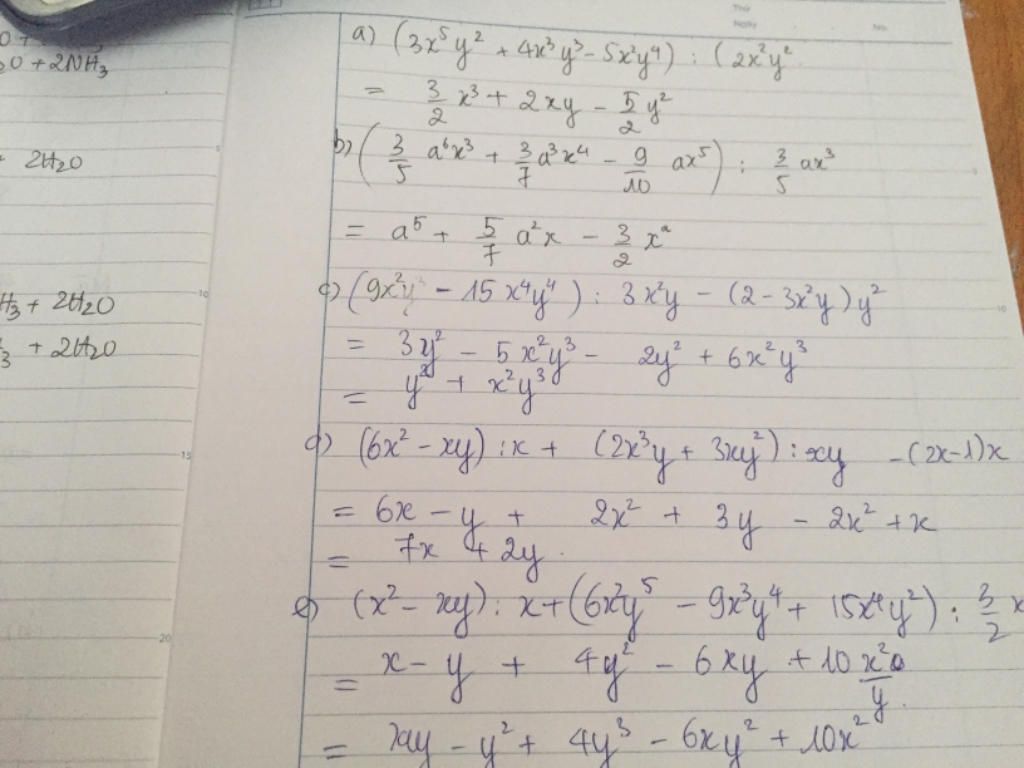 O +
2O + 2NH₃
+ 2H₂O
H₃ + 2H₂O
₃ + 2H₂O
Thứ
Ngày
No.
a) (3x⁵y² + 4x³y³ - 5x²y⁴) : (2x²y²
= 3/2 x³ + 2xy - 5/2 y²
b) (3/5 a⁶x³ + 3/7 a³x⁴ - 9/10 ax⁵) : 3/5 ax³
= a⁵ + 5/7 a²x - 3/2 x²
c) (9x²y³ - 15x⁴y⁴) : 3x²y - (2 - 3x²y)y²
= 3y² - 5x²y³ - 2y² + 6x²y³
= y² + x²y³
d) (6x² - xy) : x + (2x³y + 3xy²) : xy - (2x-1)x
= 6x - y + 2x² + 3y - 2x² + x
= 7x + 2y.
e) (x² - xy) : x + (6x²y⁵ - 9x³y⁴ + 15x⁴y²) : 3/2 x
= x - y + 4y² - 6xy + 10 x²/y.
= xy - y² + 4y³ - 6xy² + 10x²
5
10
15
20
5
10